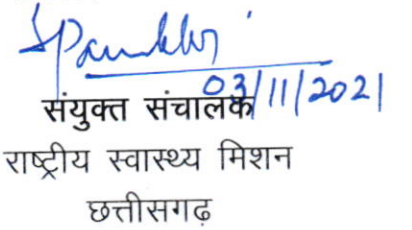 03/11/2021
संयुक्त संचालक
राष्ट्रीय स्वास्थ्य मिशन
छत्तीसगढ़